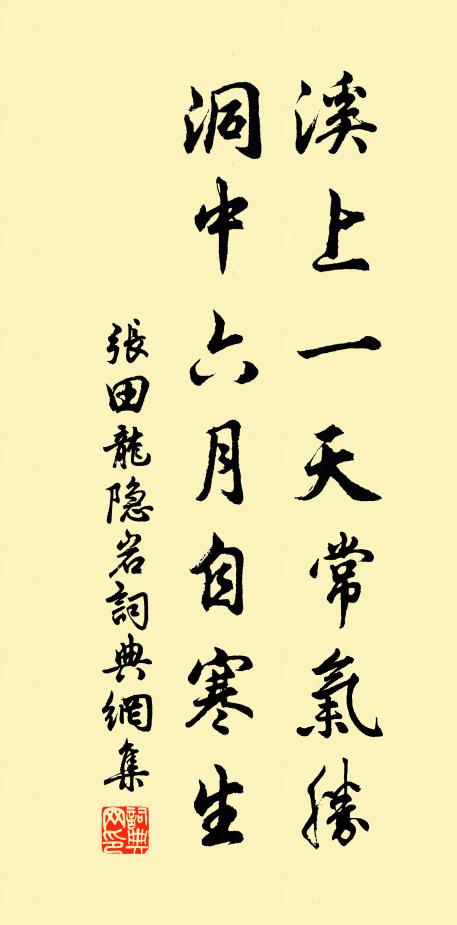 溪上一天常氣勝
洞中六月自寒生
張田龍隐岩詞典網集
詞典網印